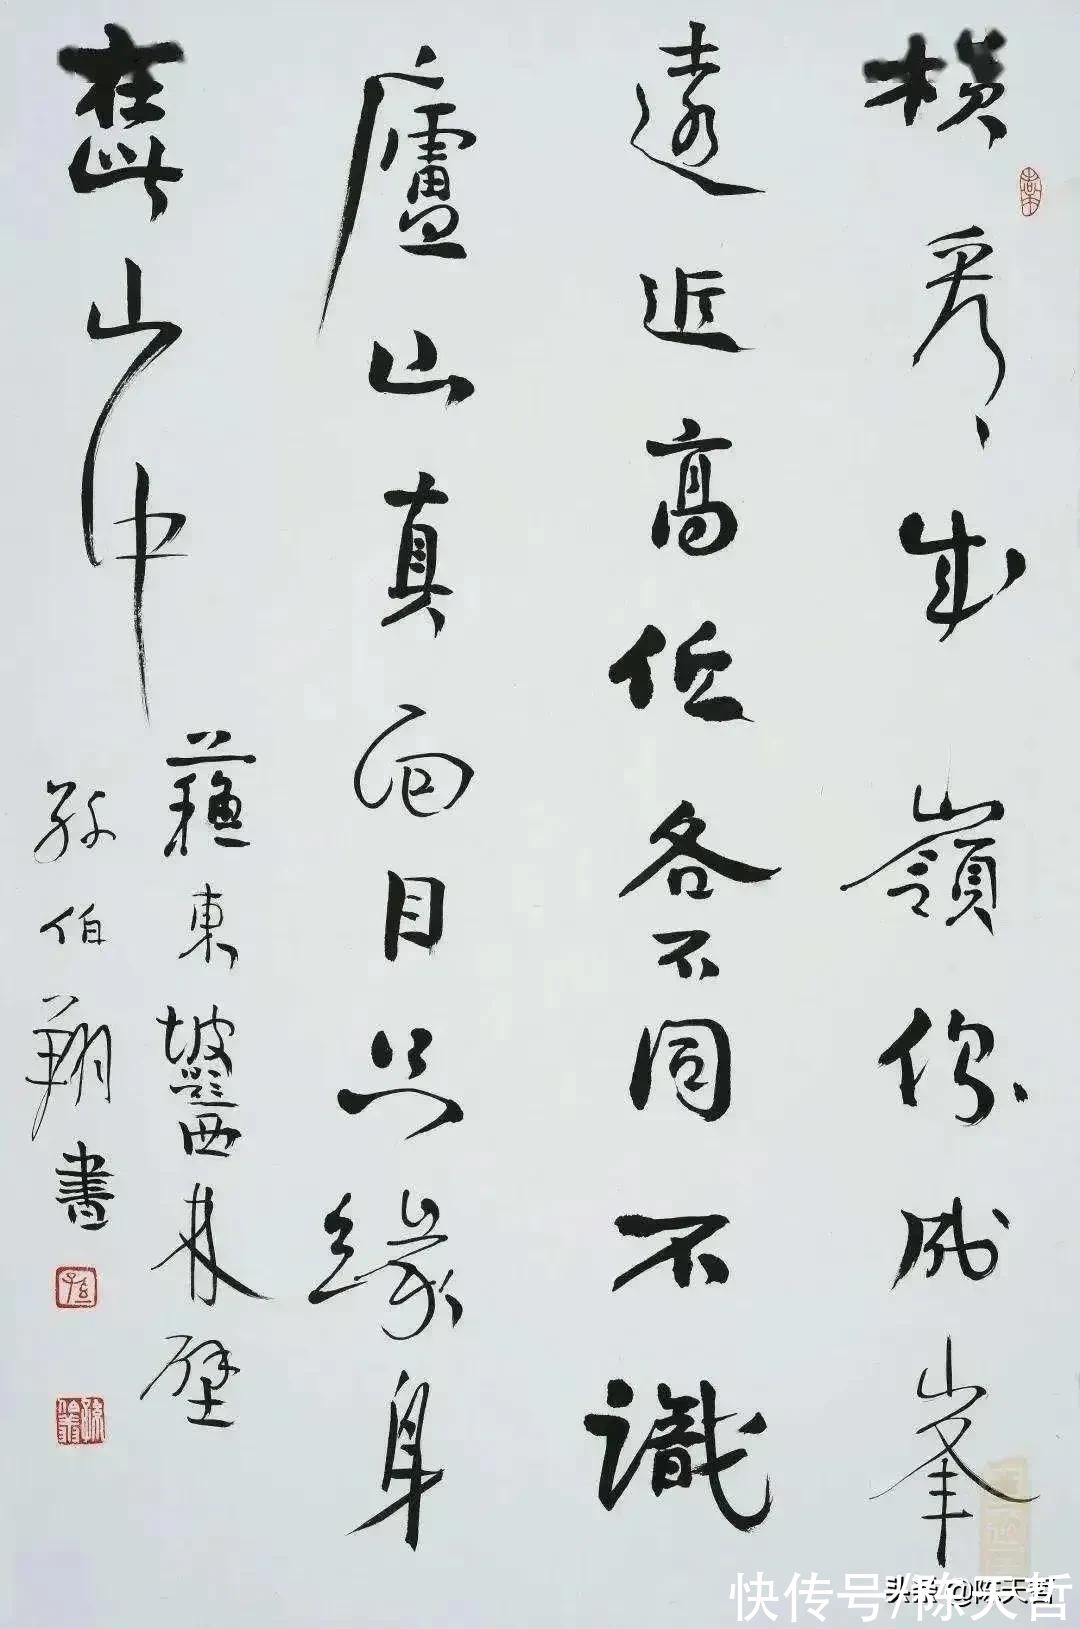 橫看成嶺側成峯
遠近高低各不同不識
廬山真面目只緣身
在此山中
蘇東坡題西林壁
孫伯翔書
头条 @陈天哲
快传号/陈天哲